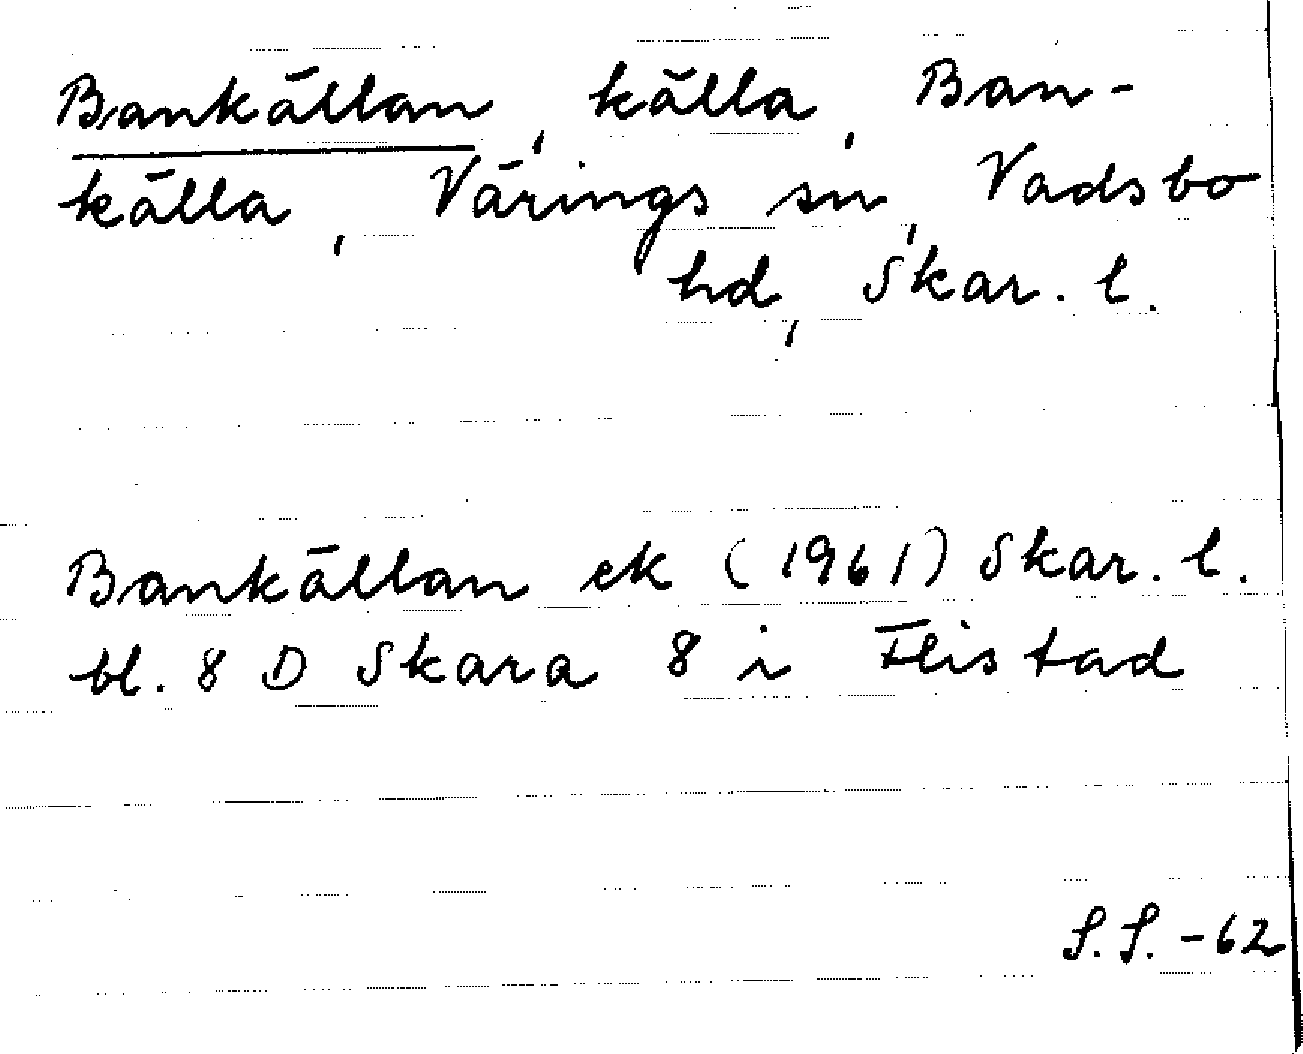 Bankällan, källa, Ban-
källa, Värings sn, Vadsbo
hd, Skar. l.
Bankällan ek (1961) Skar. l.
bl. 8 D Skara 8 i Flistad
S.S. -62